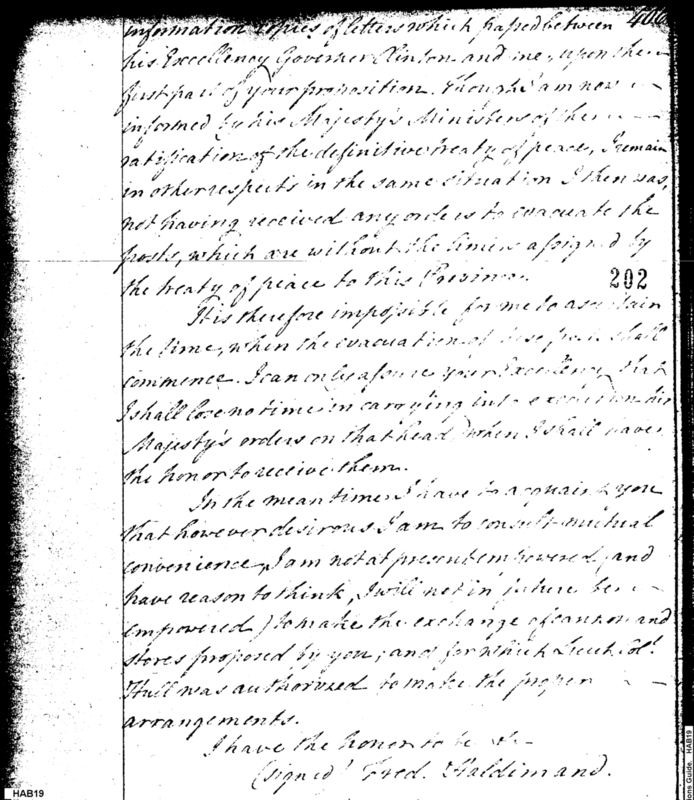 406
information copies of letters which passed between
his Excellency Governer Clinton and me, upon the
first part of your proposition. Though I am now
informed by his Majesty's Ministers of the
ratification of the definitive treaty of peace, I remain
in other respects in the same situation I then was,
not having received any orders to evacuate the
posts, which are without the limits assigned by
the treaty of peace to this Province.
202
It is therefore impossible for me to ascertain
the time, when the evacuation of these posts shall
commence. I can only assure your Excellency that
I shall lose no time in carrying into execution his
Majesty's orders on that head when I shall have
the honor to receive them.
In the mean time I have to acquaint you
that however desirous I am to consult mutual
convenience, I am not at present empowered, (and
have reason to think, I will not in future be
empowered) to make the exchange of cannon and
stores proposed by you; and for which Lieut. Col.
Hull was authorized to make the proper
arrangements.
I have the honor to be &c
(signed) Fred. Haldimand.
HAB19
ions Guide. HAB19